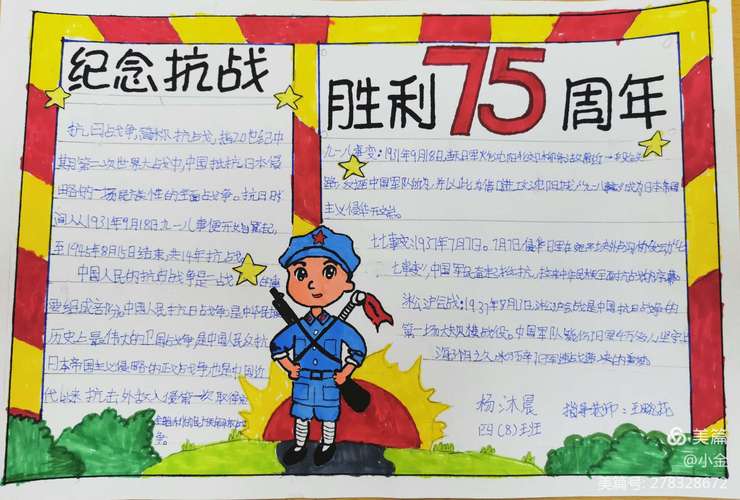 纪念抗战
胜利75周年
抗日战争,简称抗战,指20世纪中
期第二次世界大战中,中国抵抗日本侵
略的一场民族性的全面战争。抗日时
间从1931年9月18日九一八事变开始算起,
至1945年8月15日结束,共14年抗战
中国人民的抗日战争是一战 的重
要组成部分。中国人民抗日战争是中华民族
历史上最伟大的卫国战争是中国人民反抗
日本帝国主义侵略的正义战争也是中国近
代以来抗击外敌入侵第一次取得
九一八事变:1931年9月18日,
路,反诬中国军队破坏,并以此为借口进攻沈阳 九一八事变成为日本帝国
主义侵华开端。
七七事变:1937年7月7日。7月7日侵华日军在
七七事变,中国军民奋起抵抗,
淞沪会战:1937年8月13日淞沪会战是中国抗日战争的
第一场大规模战役。中国军队毙伤了日军4万多人,坚守上
海
杨沐晨
四(8)班
指导老师:王晓花
美篇
@小金
美篇号: 278328672